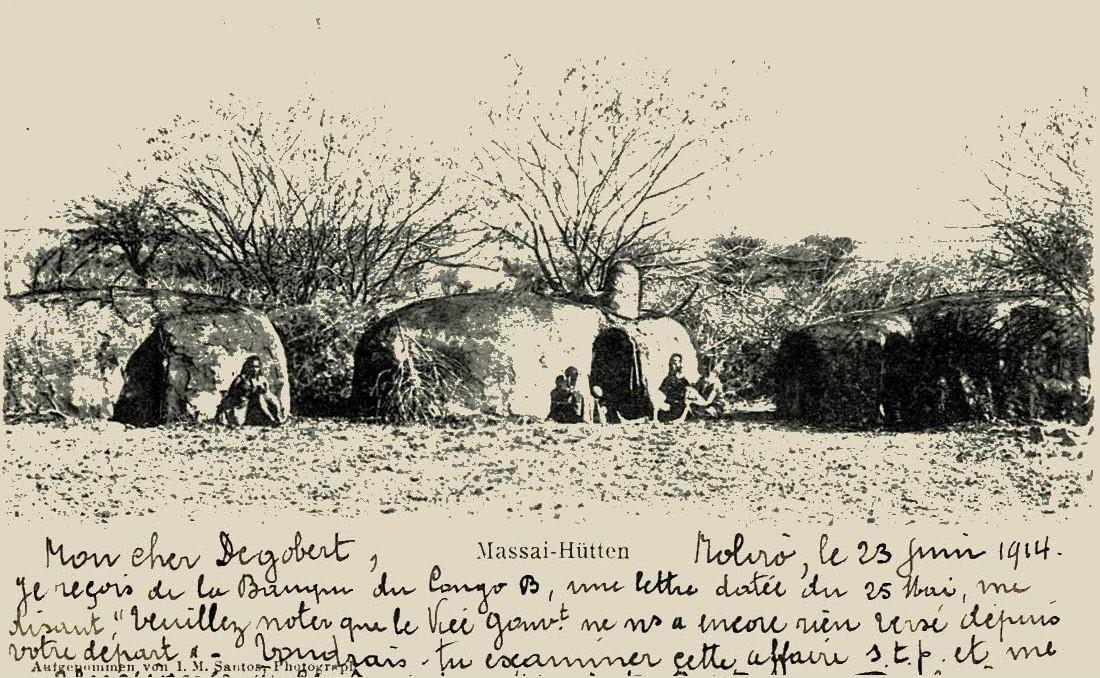 Mon cher Degobert,
Massai-Hütten
Moliro, le 23 Juin 1914.
Je reçois de la Banque du Congo B, une lettre datée du 25 Mai, me
disant, "Veuillez noter que le Vice Gouvt ne ns a encore rien versé depuis
votre départ". - Voudrais-tu examiner cette affaire s.t.p. et me
Aufgenommen von I. M. Santos, Photograph